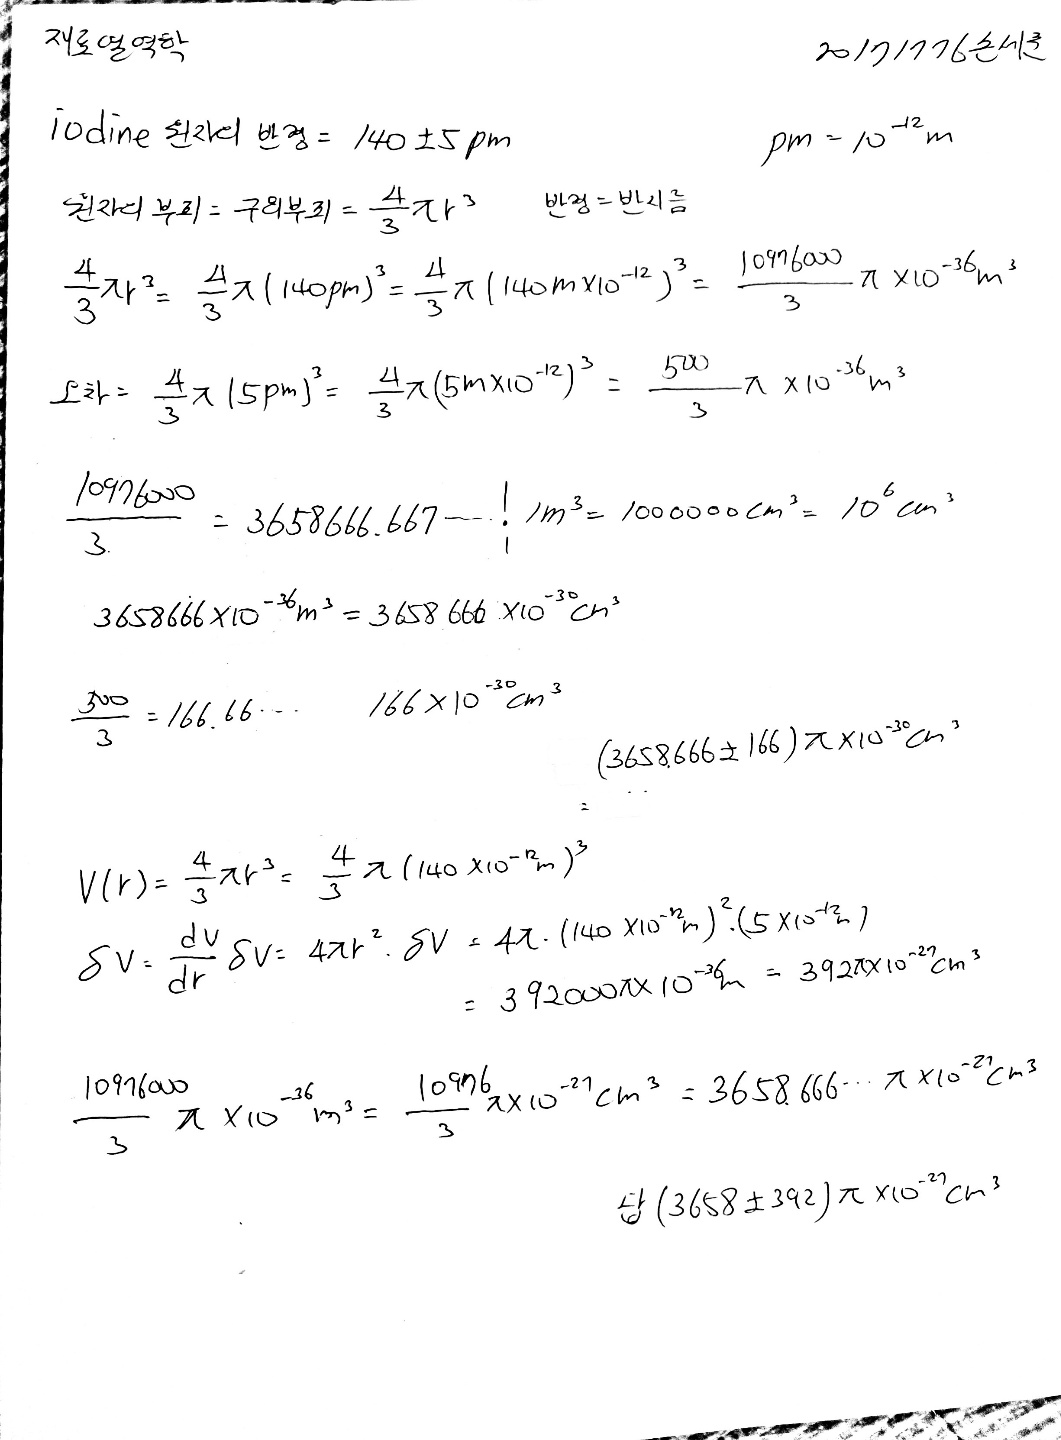 재료열역학 20171776손세른
iodine 원자의 반경 = 140 ± 5 pm pm = 10⁻¹² m
원자의 부피 = 구의부피 = 4/3 πr³ 반경 = 반지름
4/3 πr³ = 4/3 π(140pm)³ = 4/3 π(140m×10⁻¹²)³ = 10976000/3 π ×10⁻³⁶m³
오차 = 4/3 π(5pm)³ = 4/3 π(5m×10⁻¹²)³ = 500/3 π ×10⁻³⁶m³
10976000/3. = 3658666.667 --- 1m³ = 1000000cm³ = 10⁶cm³
3658666×10⁻³⁶m³ = 3658666×10⁻³⁰cm³
500/3 = 166.66... 166×10⁻³⁰cm³
(3658.666 ± 166)π×10⁻³⁰cm³
=
V(r) = 4/3 πr³ = 4/3 π(140×10⁻¹²m)³
δV = dV/dr δV = 4πr² · δV = 4π·(140×10⁻¹²m)²·(5×10⁻¹²m)
= 392000π×10⁻³⁶m = 392π×10⁻²⁷cm³
10976000/3 π×10⁻³⁶m³ = 10976/3 π×10⁻²⁷cm³ = 3658.666... π×10⁻²⁷cm³
답 (3658 ± 392)π×10⁻²⁷cm³